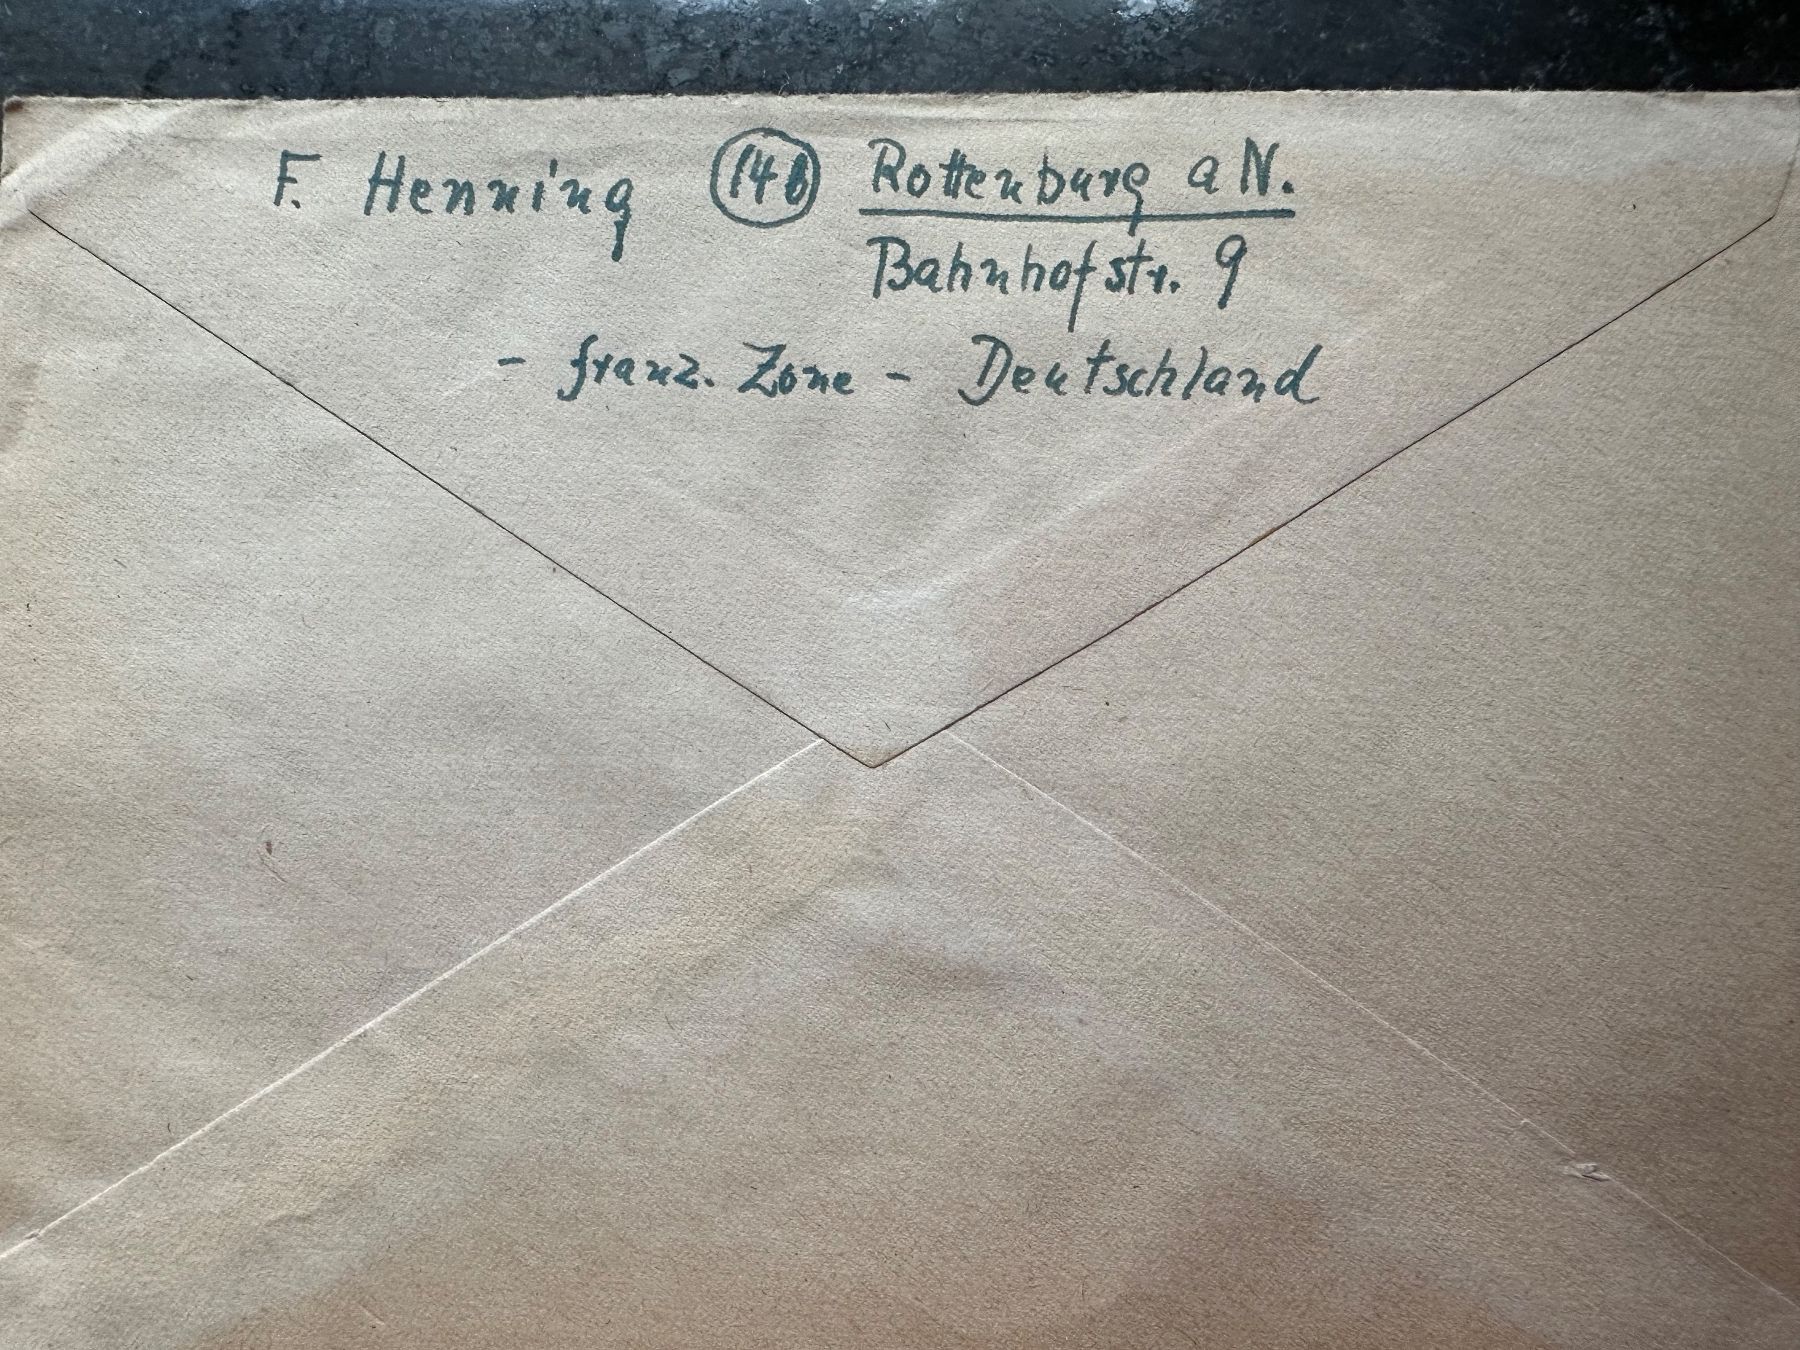 F. Henning (14b) Rottenburg a N.
Bahnhofstr. 9
- franz. Zone - Deutschland